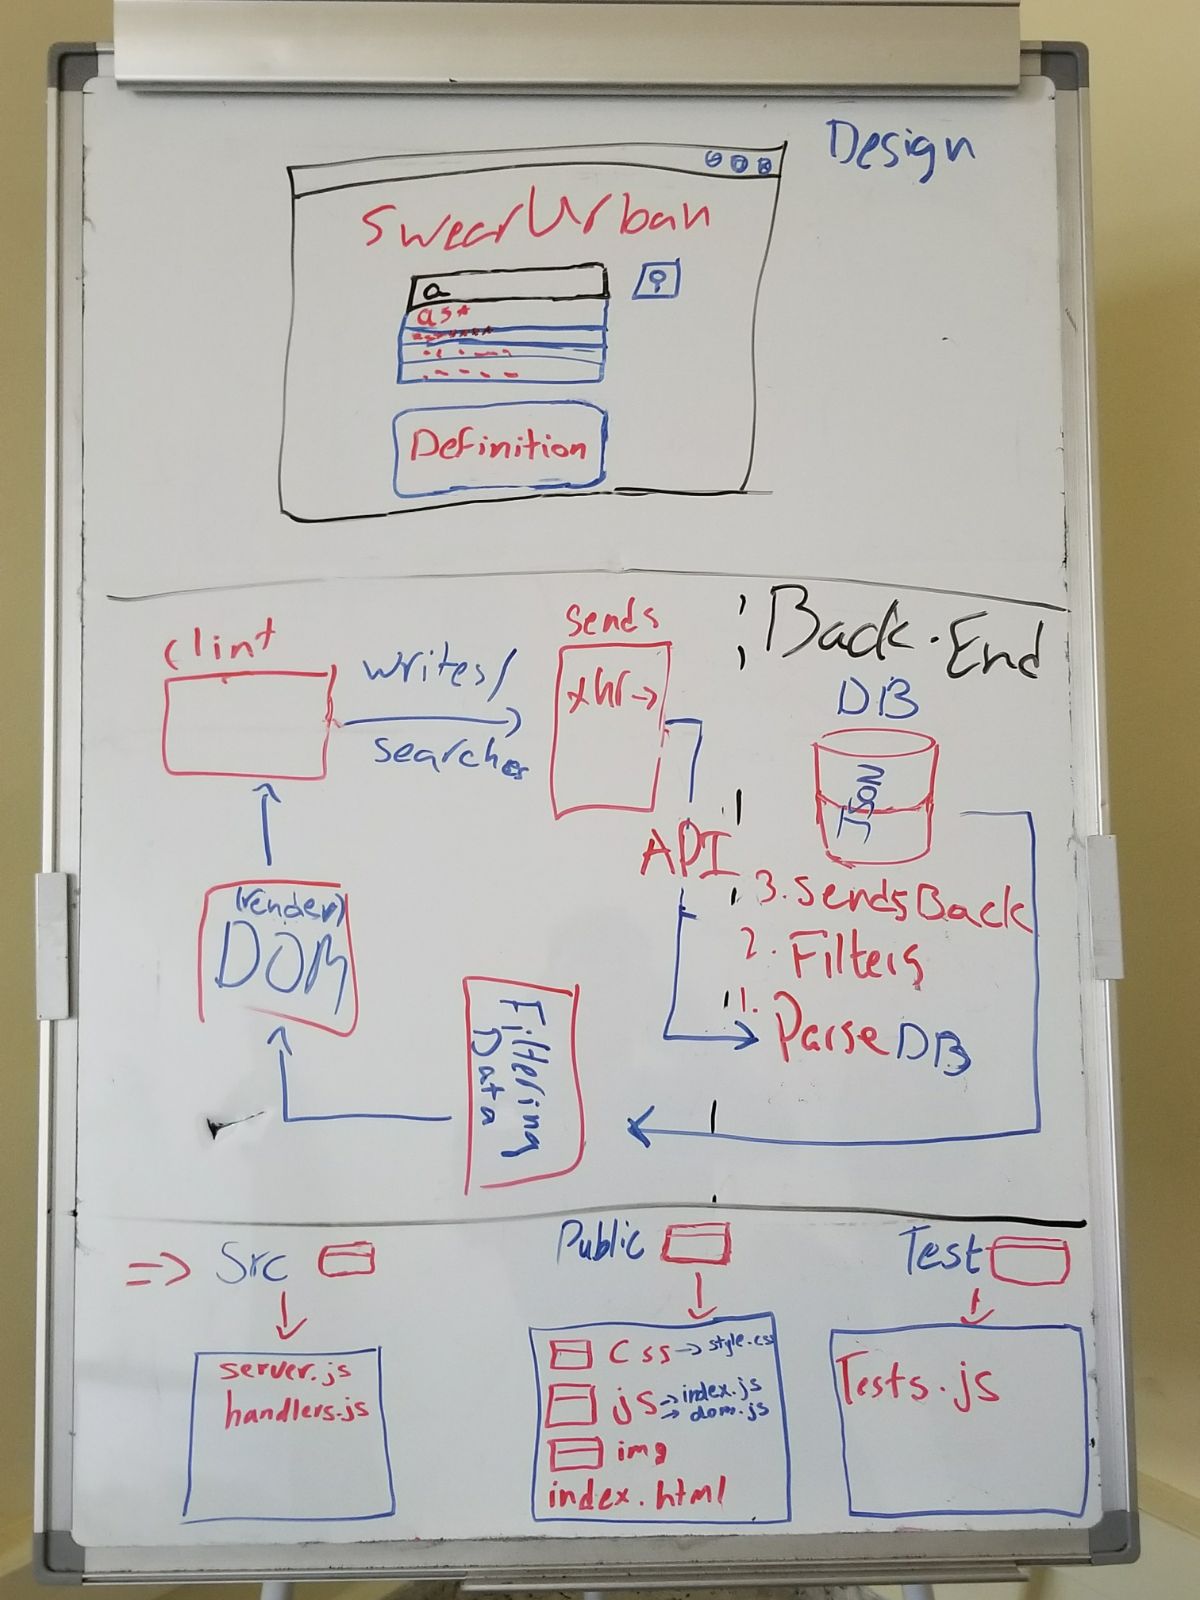 Design
SwearUrban
a
as*
Definition
Back-End
clint
writes/
searches
sends
xhr→
DB
JSON
API
3. sendsBack
2. Filters
1. Parse DB
(render)
DOM
Filtering
Data
=> Src
server.js
handlers.js
Public
Css → style.css
js → index.js
→ dom.js
img
index.html
Test
Tests.js